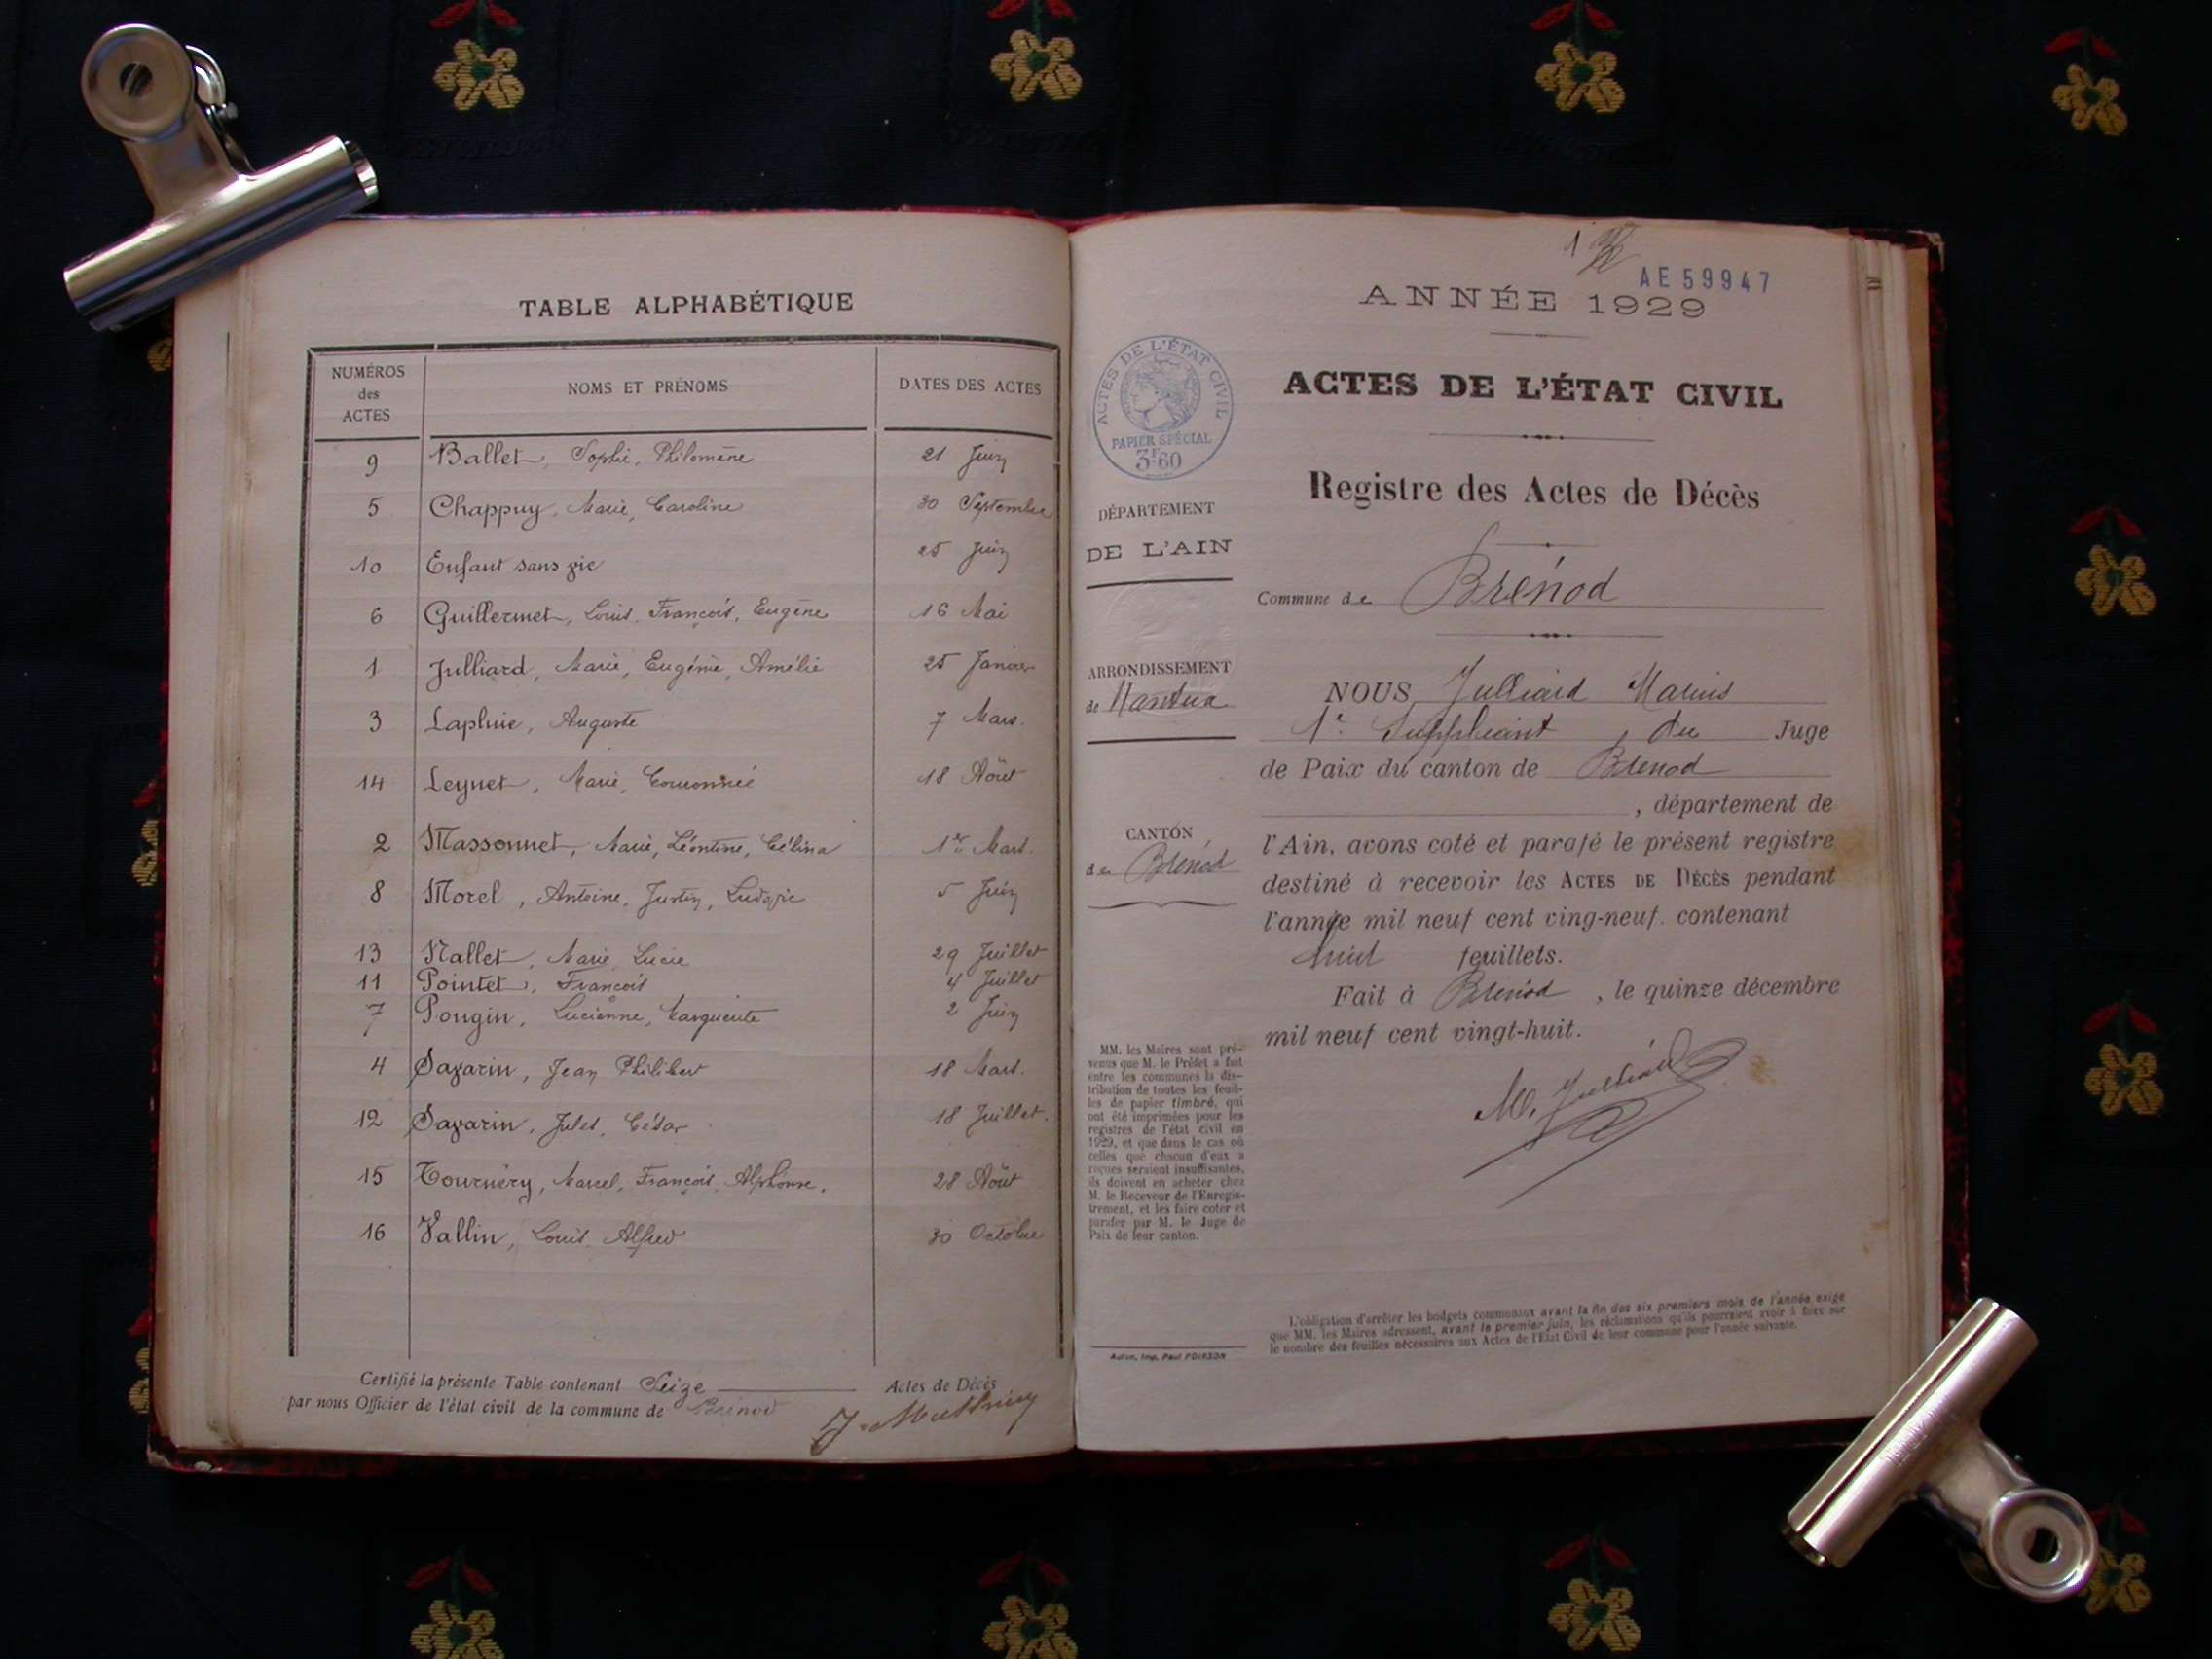 TABLE ALPHABÉTIQUE
NUMÉROS des ACTES NOMS ET PRÉNOMS DATES DES ACTES
9 Ballet, Sophie, Philomène 21 Juin
5 Chappuy, Marie, Caroline 30 Septembre
10 Enfant sans vie 25 Juin
6 Guillermet, Louis, François, Eugène 16 Mai
1 Julliard, Marie, Eugénie, Amélie 25 Janvier
3 Lapluie, Auguste 7 Mars.
14 Leynet, Marie, 18 Août
2 Massonnet, Marie, Léontine, Célina 1er Mars.
8 Morel, Antoine, Justin, Ludovic 5 Juin
13 Nallet, Marie Lucie 29 Juillet
11 Pointet, François 4 Juillet
7 Pougin, Lucienne, Marguerite 2 Juin
4 Savarin, Jean Philibert 18 Mars.
12 Savarin, Jules, César 18 Juillet.
15 Tournéry, Marcel, François, Alphonse. 28 Août
16 Vallin, Louis Alfred 30 Octobre
Certifié la présente Table contenant Seize Actes de Décès
par nous Officier de l'état civil de la commune de Brénod
1
AE 59947
ANNÉE 1929
ACTES DE L'ÉTAT CIVIL
PAPIER SPÉCIAL
3F60
ACTES DE L'ÉTAT CIVIL
Registre des Actes de Décès
DÉPARTEMENT
DE L'AIN
Commune de Brénod
ARRONDISSEMENT
de Nantua
NOUS Julliard Marius
1er Suppléant du Juge
de Paix du canton de Brenod
, département de
CANTON
de Brénod
l'Ain, avons coté et parafé le présent registre
destiné à recevoir les ACTES DE DÉCÈS pendant
l'année mil neuf cent ving-neuf. contenant
huit feuillets.
Fait à Brénod, le quinze décembre
mil neuf cent vingt-huit.
M. Julliard
MM. les Maires sont pré-
venus que M. le Préfet a fait
entre les communes la dis-
tribution de toutes les feuil-
les de papier timbré, qui
ont été imprimées pour les
registres de l'état civil en
1929, et que dans le cas où
celles que chacun d'eux a
reçues seraient insuffisantes,
ils doivent en acheter chez
M. le Receveur de l'Enregis-
trement, et les faire coter et
parafer par M. le Juge de
Paix de leur canton.
L'obligation d'arrêter les budgets communaux avant la fin des six premiers mois de l'année exige
que MM. les Maires adressent, avant le premier juin, les réclamations qu'ils pourraient avoir à faire sur
le nombre des feuilles nécessaires aux Actes de l'État Civil de leur commune pour l'année suivante.
Autun, Imp. Paul POIRSON